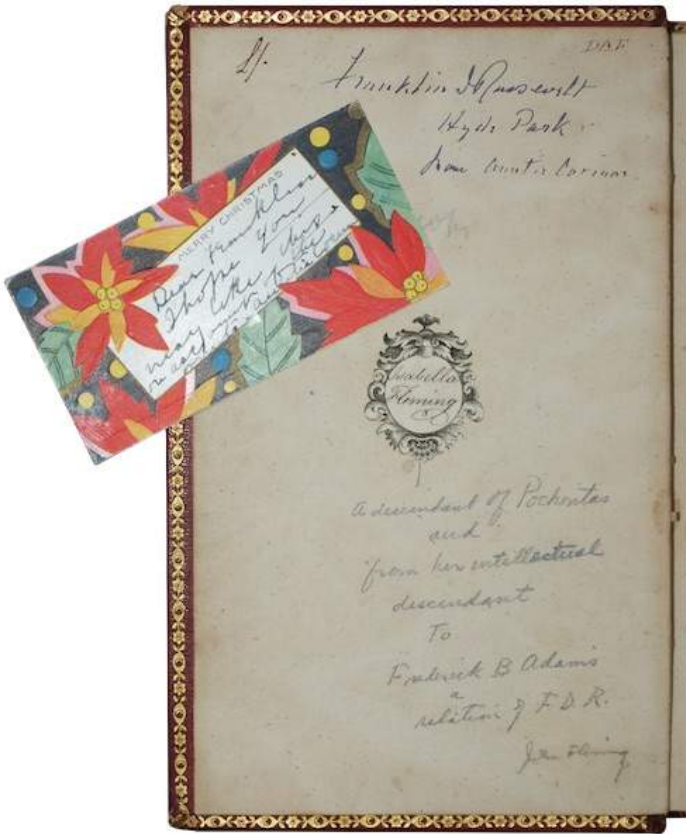 Franklin D Roosevelt
Hyde Park
from Auntie Corinne
MERRY CHRISTMAS
Dear Franklin
I hope you
may like this
Isabella
Fleming
A descendant of Pochontas
and
from her intellectual
descendant
To
Frederick B Adams
a
relation of F. D. R.
John Fleming